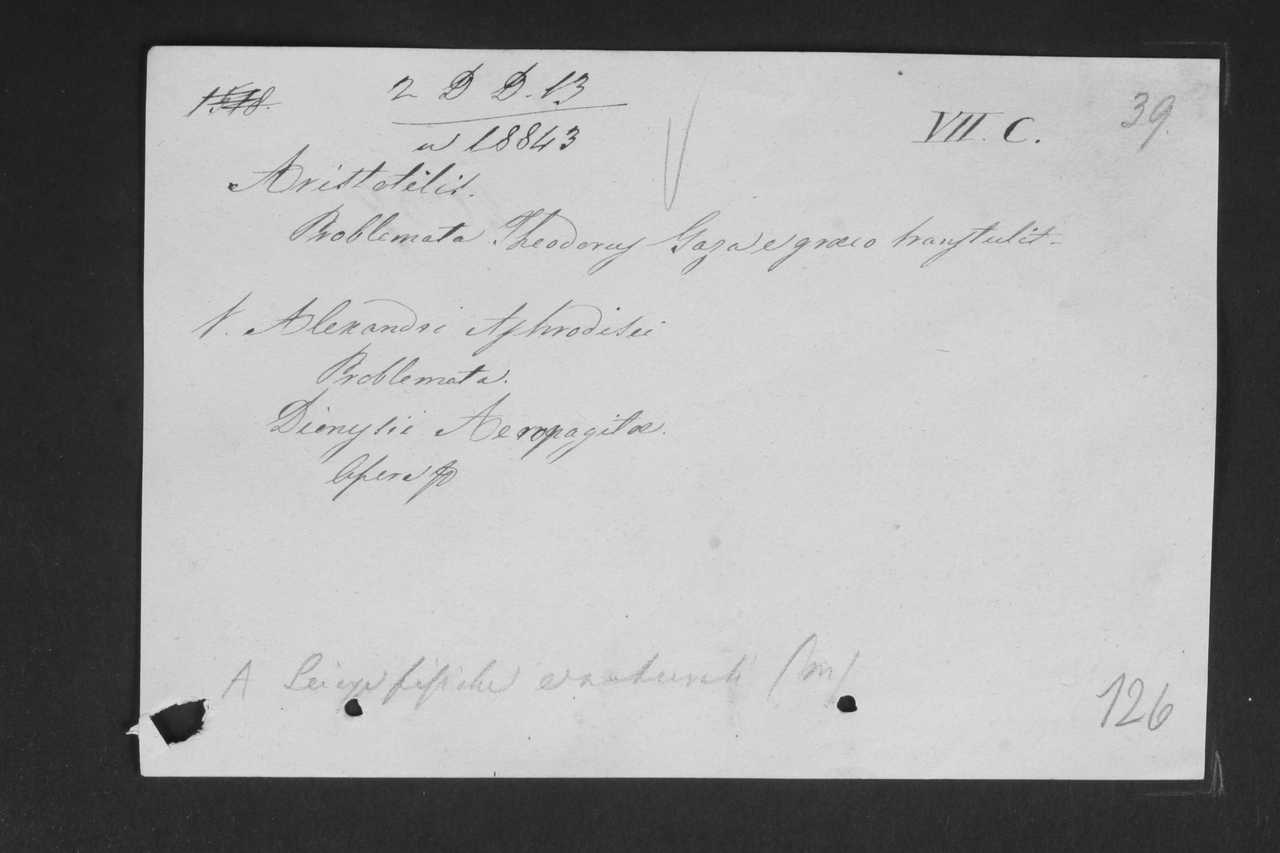 2 D D. 13
n 18843
VII. C.
39.
Aristotelis.
Problemata Theodorus Gaza e græco transtulit.
V. Alexandri Aphrodisei
Problemata.
Dionysii Aeropagitæ.
Opera
A Scienze fisiche e naturali (m)
126